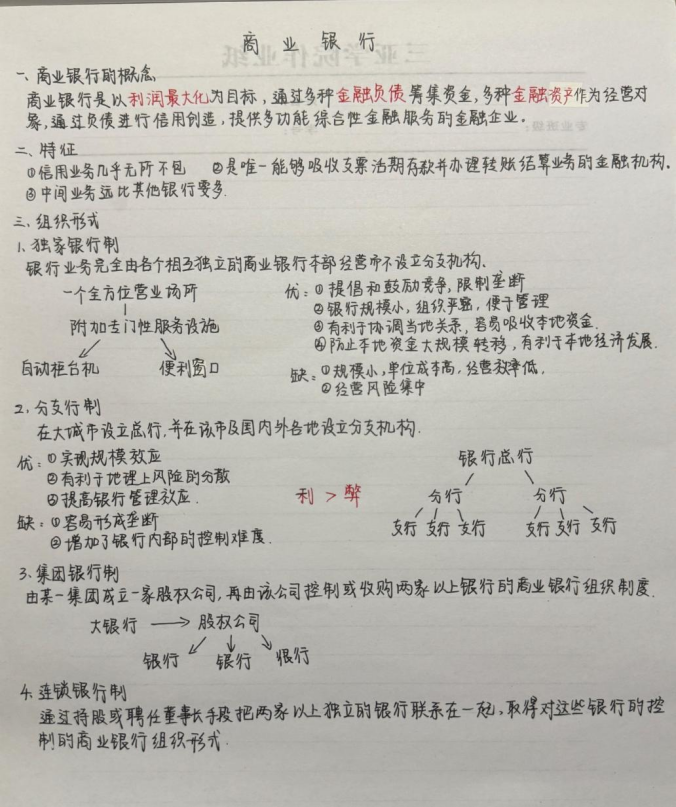 商业银行
一、商业银行的概念
商业银行是以利润最大化为目标，通过多种金融负债筹集资金，多种金融资产作为经营对
象，通过负债进行信用创造，提供多功能综合性金融服务的金融企业。
二、特征
①信用业务几乎无所不包 ②是唯一能够吸收支票活期存款并办理转账结算业务的金融机构。
③中间业务远比其他银行要多.
三、组织形式
1、独家银行制
银行业务完全由各个相互独立的商业银行本部经营而不设立分支机构、
一个全方位营业场所
附加专门性服务设施
自动柜台机 便利窗口
优：①提倡和鼓励竞争，限制垄断
②银行规模小，组织严密，便于管理
③有利于协调当地关系，容易吸收本地资金.
④防止本地资金大规模转移，有利于本地经济发展.
缺：①规模小，单位成本高，经营效率低，
②经营风险集中
2、分支行制
在大城市设立总行，并在该市及国内外各地设立分支机构.
优：①实现规模效应
②有利于地理上风险的分散
③提高银行管理效应.
缺：①容易形成垄断
②增加了银行内部的控制难度.
利 > 弊
银行总行
分行 分行
支行 支行 支行 支行 支行 支行
3、集团银行制
由某一集团成立一家股权公司，再由该公司控制或收购两家以上银行的商业银行组织制度.
大银行 → 股权公司
银行 银行 银行
4、连锁银行制
通过持股或聘任董事长手段把两家以上独立的银行联系在一起，取得对这些银行的控
制的商业银行组织形式.